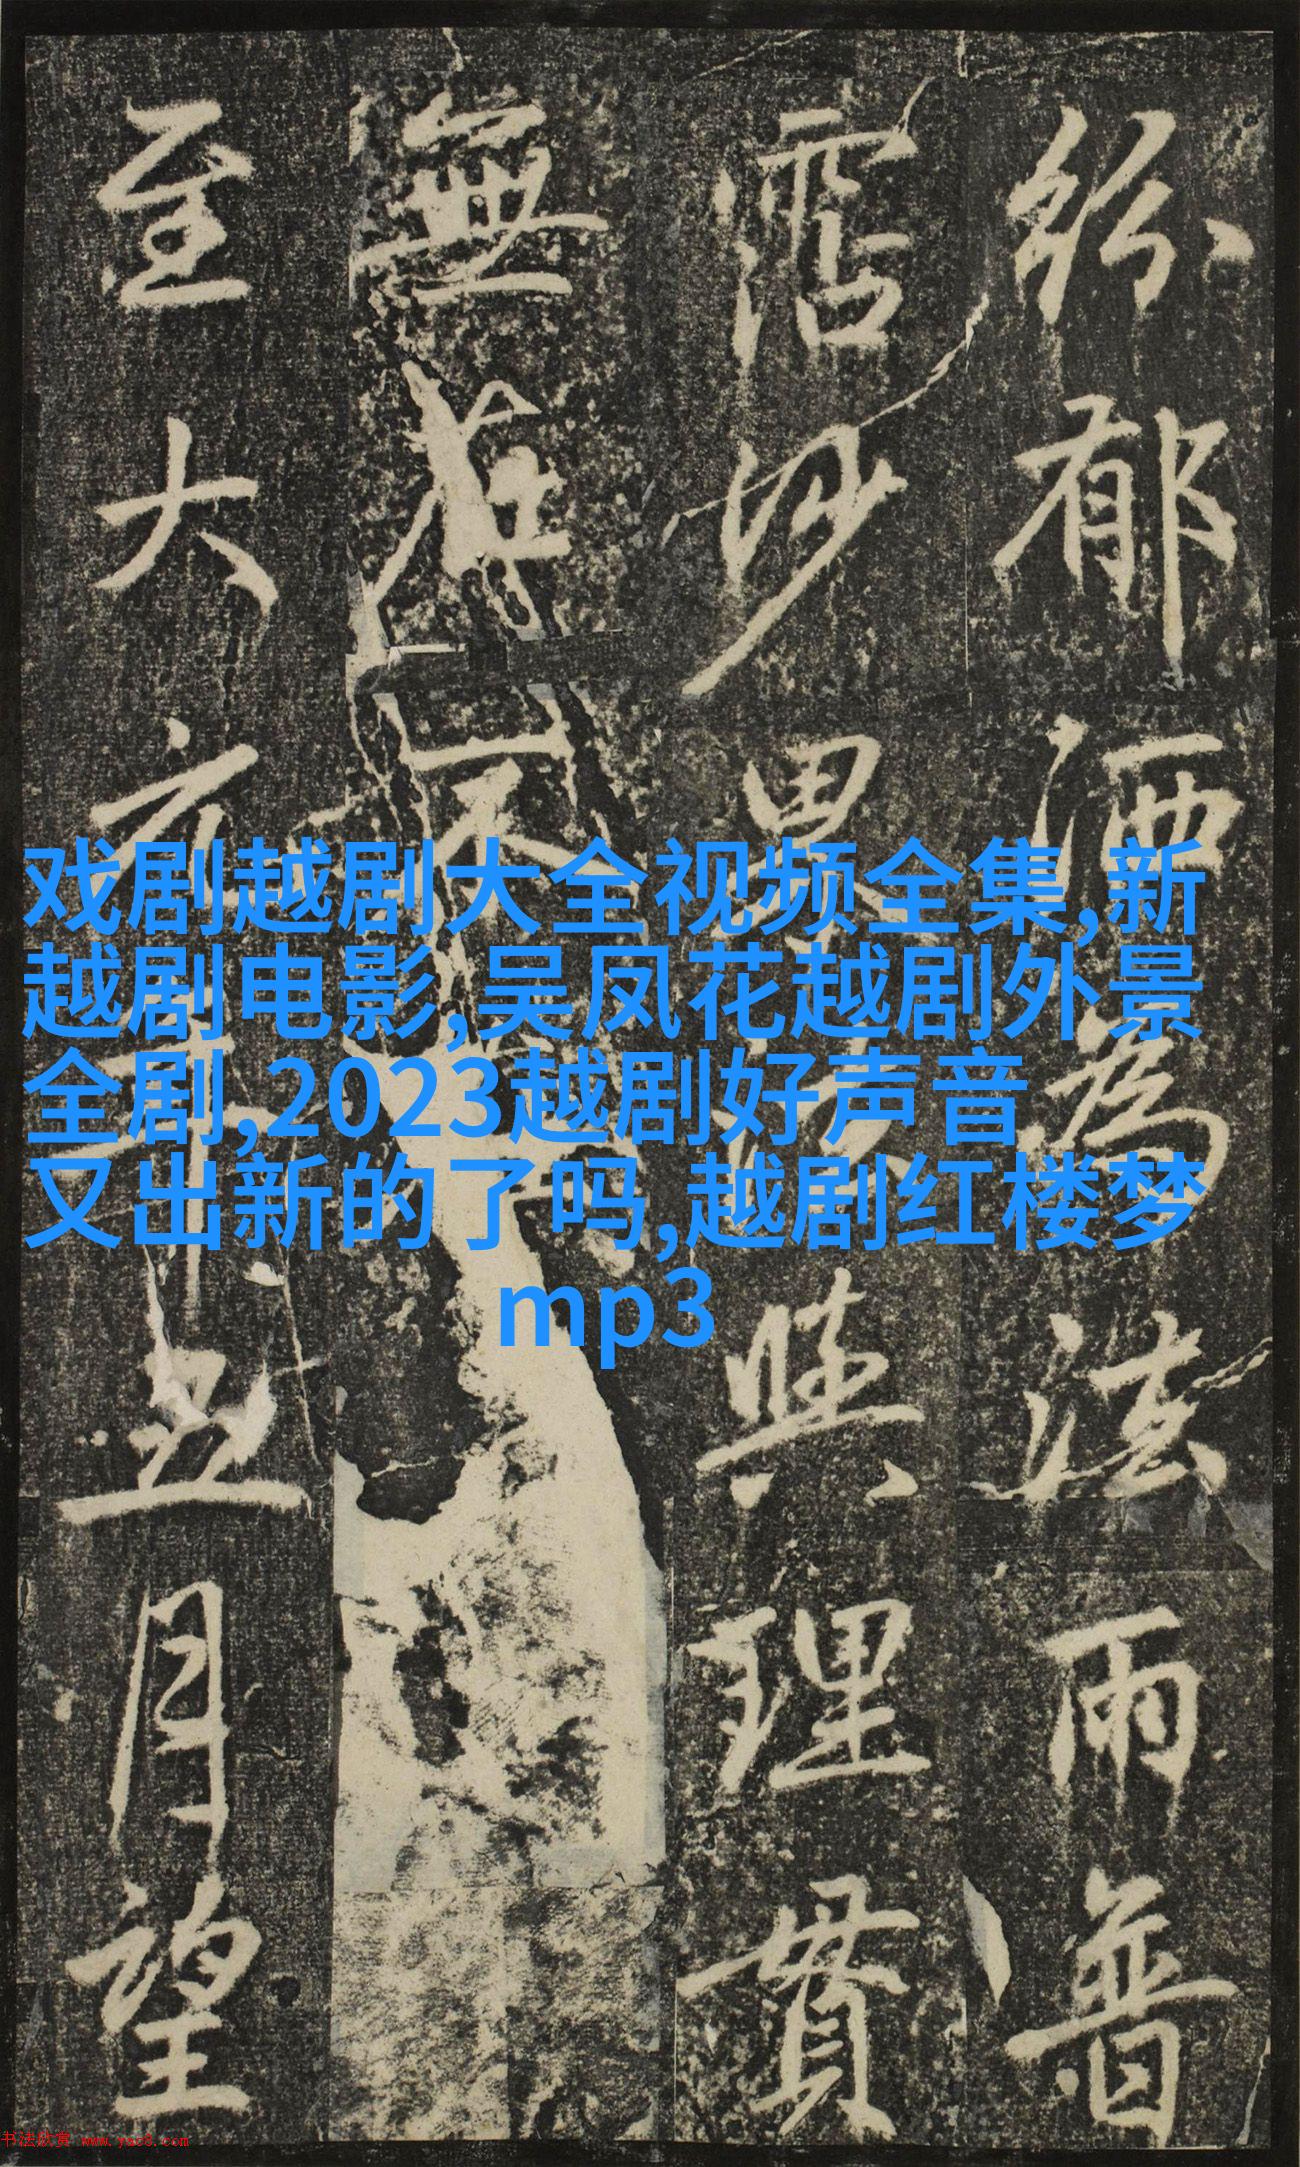 紛郁洒為法雨普
霑沙界
與理貫
無
至大
五月望
戏剧越剧大全视频全集,新
越剧电影,吴凤花越剧外景
全剧,2023越剧好声音
又出新的了吗,越剧红楼梦
mp3
书法欣赏 www.yac8.com